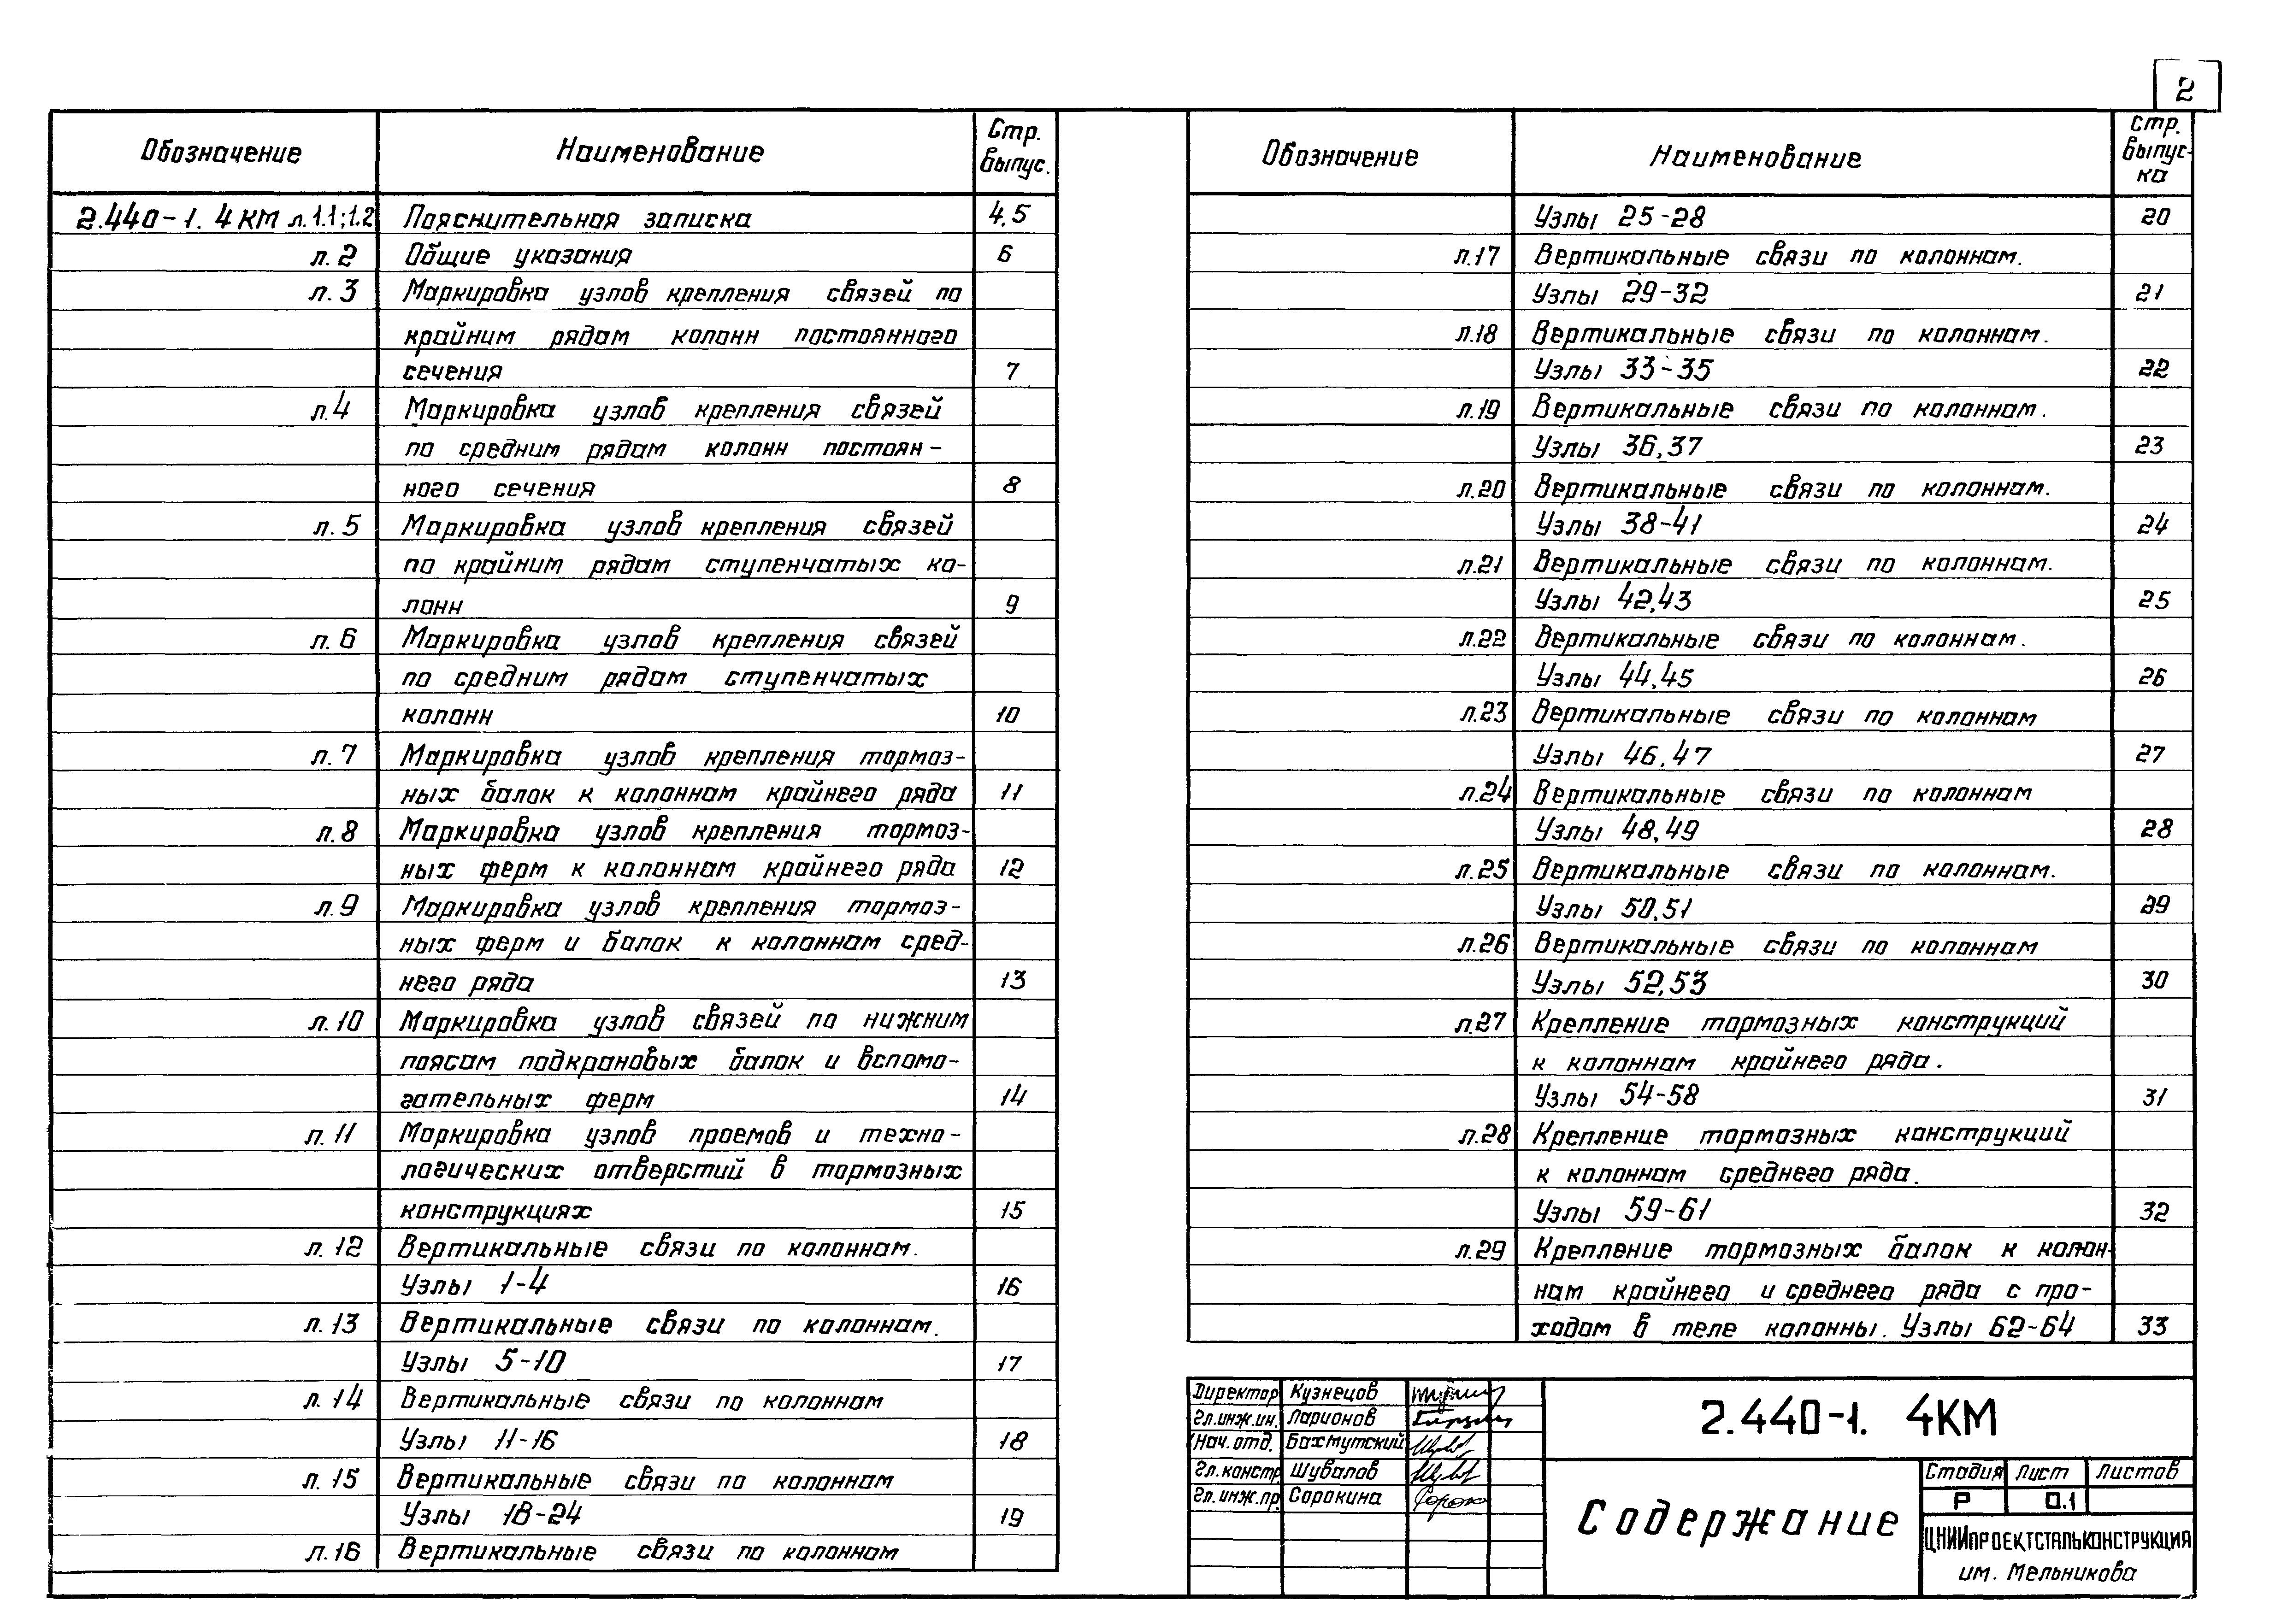 2
Обозначение Наименование Стр. выпус.
2.440-1. 4КМ л.1.1;1.2 Пояснительная записка 4,5
л.2 Общие указания 6
л.3 Маркировка узлов крепления связей по
крайним рядам колонн постоянного
сечения 7
л.4 Маркировка узлов крепления связей
по средним рядам колонн постоян-
ного сечения 8
л.5 Маркировка узлов крепления связей
по крайним рядам ступенчатых ко-
лонн 9
л.6 Маркировка узлов крепления связей
по средним рядам ступенчатых
колонн 10
л.7 Маркировка узлов крепления тормоз-
ных балок к колоннам крайнего ряда 11
л.8 Маркировка узлов крепления тормоз-
ных ферм к колоннам крайнего ряда 12
л.9 Маркировка узлов крепления тормоз-
ных ферм и балок к колоннам сред-
него ряда 13
л.10 Маркировка узлов связей по нижним
поясам подкрановых балок и вспомо-
гательных ферм 14
л.11 Маркировка узлов проемов и техно-
логических отверстий в тормозных
конструкциях 15
л.12 Вертикальные связи по колоннам.
Узлы 1-4 16
л.13 Вертикальные связи по колоннам.
Узлы 5-10 17
л.14 Вертикальные связи по колоннам
Узлы 11-16 18
л.15 Вертикальные связи по колоннам
Узлы 18-24 19
л.16 Вертикальные связи по колоннам
Обозначение Наименование Стр. выпус-ка
Узлы 25-28 20
л.17 Вертикальные связи по колоннам.
Узлы 29-32 21
л.18 Вертикальные связи по колоннам.
Узлы 33-35 22
л.19 Вертикальные связи по колоннам.
Узлы 36,37 23
л.20 Вертикальные связи по колоннам.
Узлы 38-41 24
л.21 Вертикальные связи по колоннам.
Узлы 42,43 25
л.22 Вертикальные связи по колоннам.
Узлы 44,45 26
л.23 Вертикальные связи по колоннам
Узлы 46,47 27
л.24 Вертикальные связи по колоннам
Узлы 48,49 28
л.25 Вертикальные связи по колоннам.
Узлы 50,51 29
л.26 Вертикальные связи по колоннам
Узлы 52,53 30
л.27 Крепление тормозных конструкций
к колоннам крайнего ряда.
Узлы 54-58 31
л.28 Крепление тормозных конструкций
к колоннам среднего ряда.
Узлы 59-61 32
л.29 Крепление тормозных балок к колон-
нам крайнего и среднего ряда с про-
ходом в теле колонны. Узлы 62-64 33
Директор Кузнецов
Гл.инж.ин. Ларионов
Нач.отд. Бахмутский
Гл.констр. Шувалов
Гл.инж.пр. Сорокина
2.440-1. 4КМ
Содержание
Стадия Лист Листов
Р 0.1
ЦНИИпроектстальконструкция
им. Мельникова